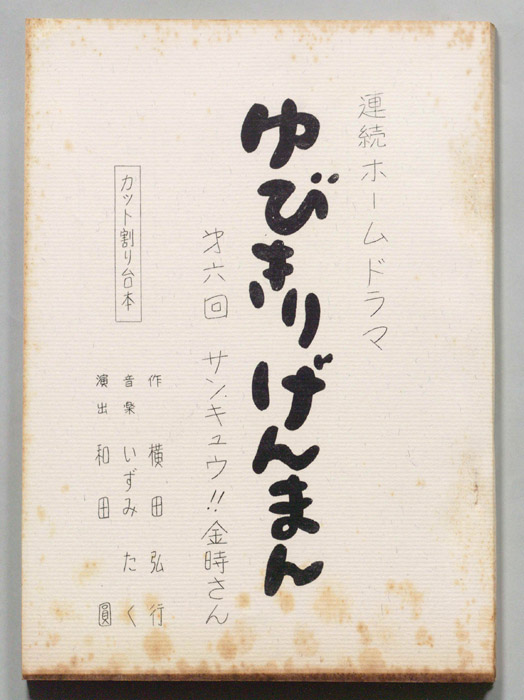 連続ホームドラマ
ゆびきりげんまん
才六回 サンキュウ!!金時さん
カット割り台本
作 横田弘行
音楽 いずみたく
演出 和田 圓